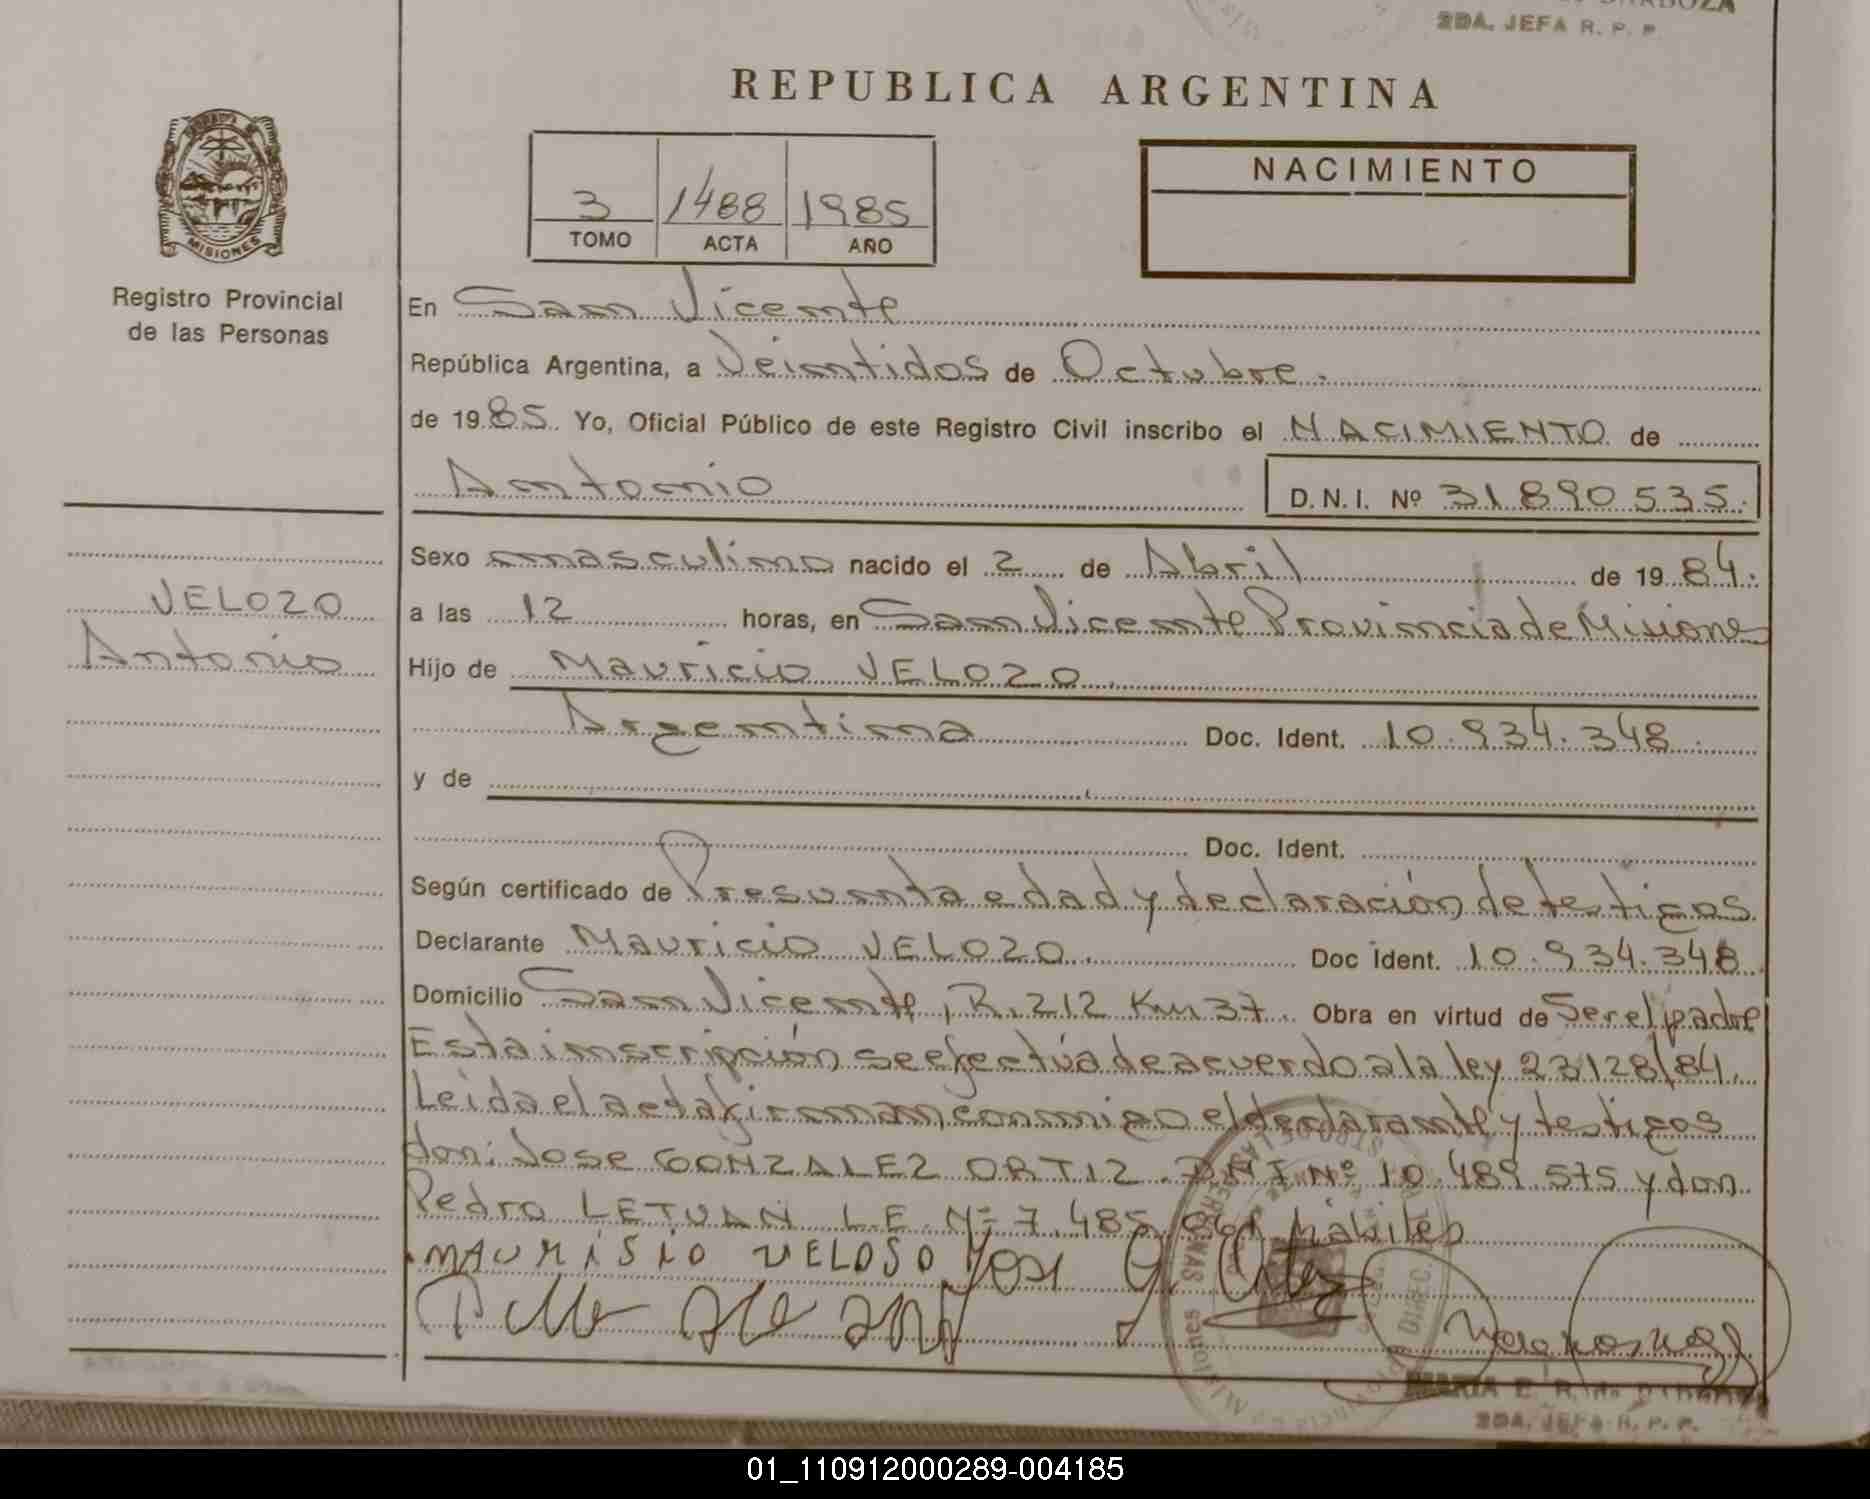 BARBOZA
2DA. JEFA R. P. P.
REPUBLICA ARGENTINA
MISIONES
Registro Provincial
de las Personas
3 1488 1985
TOMO ACTA AÑO
NACIMIENTO
En San Vicente
República Argentina, a Veintidos de Octubre.
de 1985. Yo, Oficial Público de este Registro Civil inscribo el NACIMIENTO de
Antonio D.N.I. Nº 31.890.535.
VELOZO
Antonio
Sexo masculino nacido el 2 de Abril de 1984.
a las 12 horas, en San Vicente Provincia de Misiones
Hijo de Mauricio VELOZO.
Argentina Doc. Ident. 10.934.348.
y de
Doc. Ident.
Según certificado de Presunta edad y declaración de testigos
Declarante Mauricio VELOZO. Doc Ident. 10.934.348
Domicilio San Vicente, R. 212 Km 37. Obra en virtud de Ser el padre
Esta inscripción se efectúa de acuerdo a la ley 23128/84.
Leida el acta firman conmigo el declarante y testigos
don: Jose GONZALEZ ORTIZ. DNI Nº 10.489.575 y don
Pedro LETUAN L.E. Nº 7.485. hábiles
MAURISIO VELOSO Jose G. Ortiz
MARIA E. R. de
2DA. JEFA R. P. P.
01_110912000289-004185